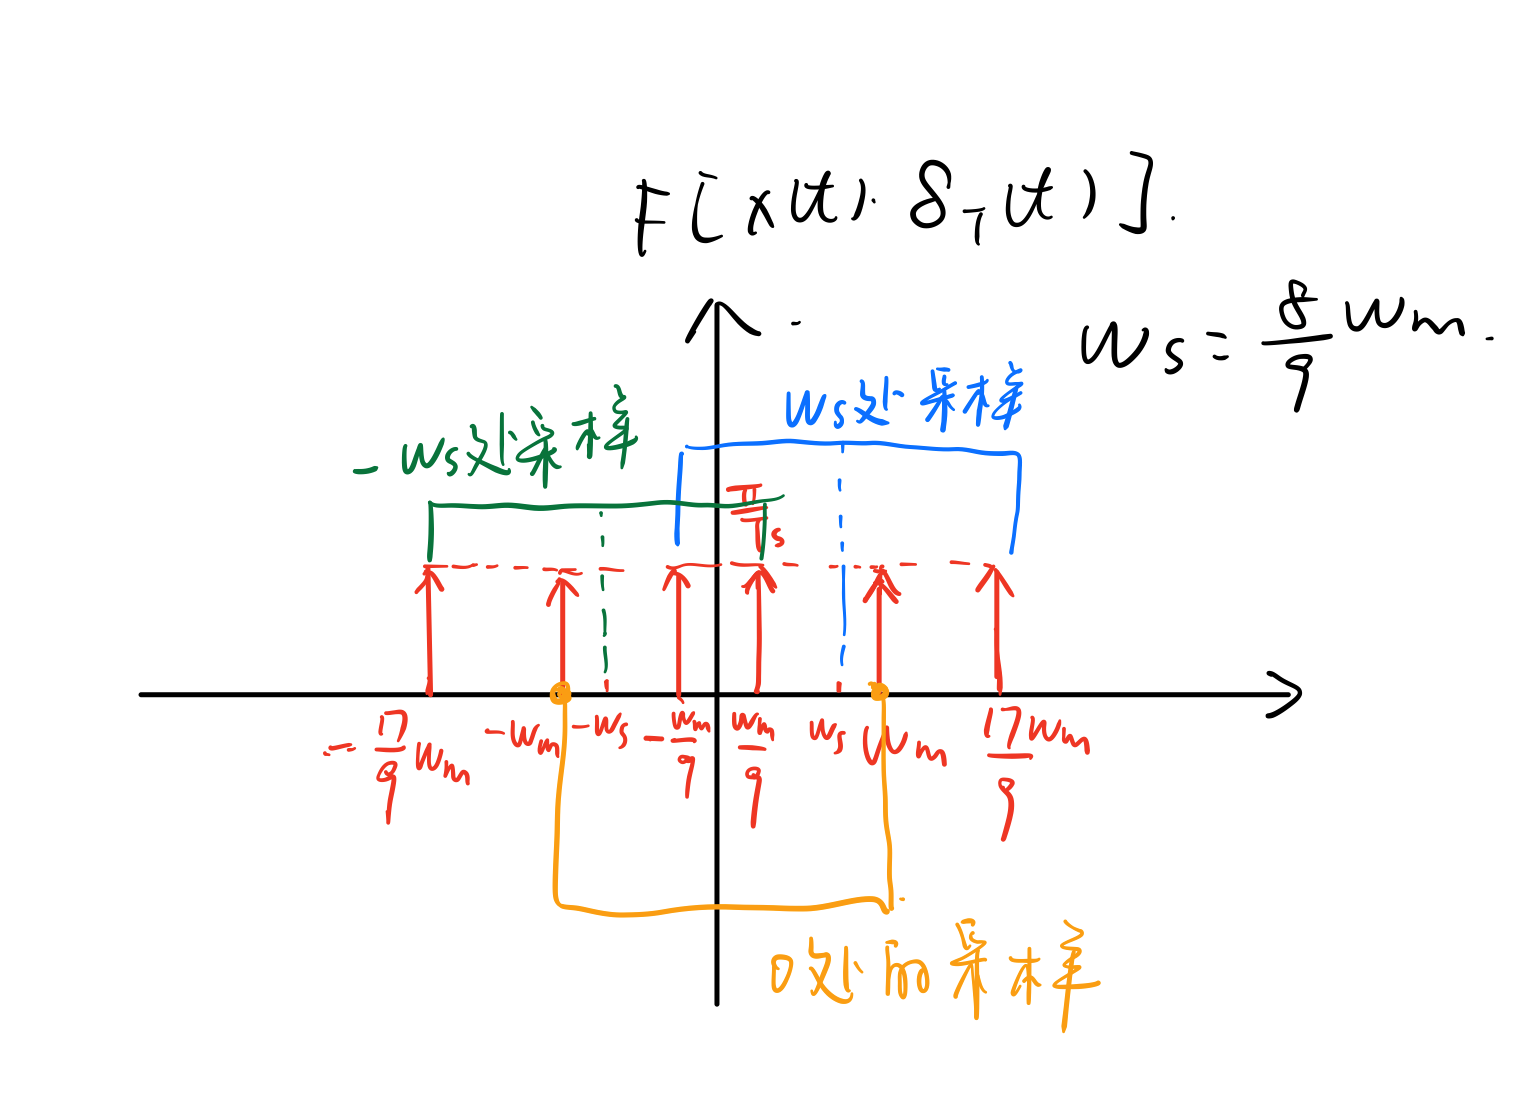 F[x(t)·δ_T(t)].
ws = 8/9 wm.
ws处采样
-ws处采样
π/Ts
-17/9 wm -wm -ws -wm/9 wm/9 ws wm 17wm/9
0处的采样